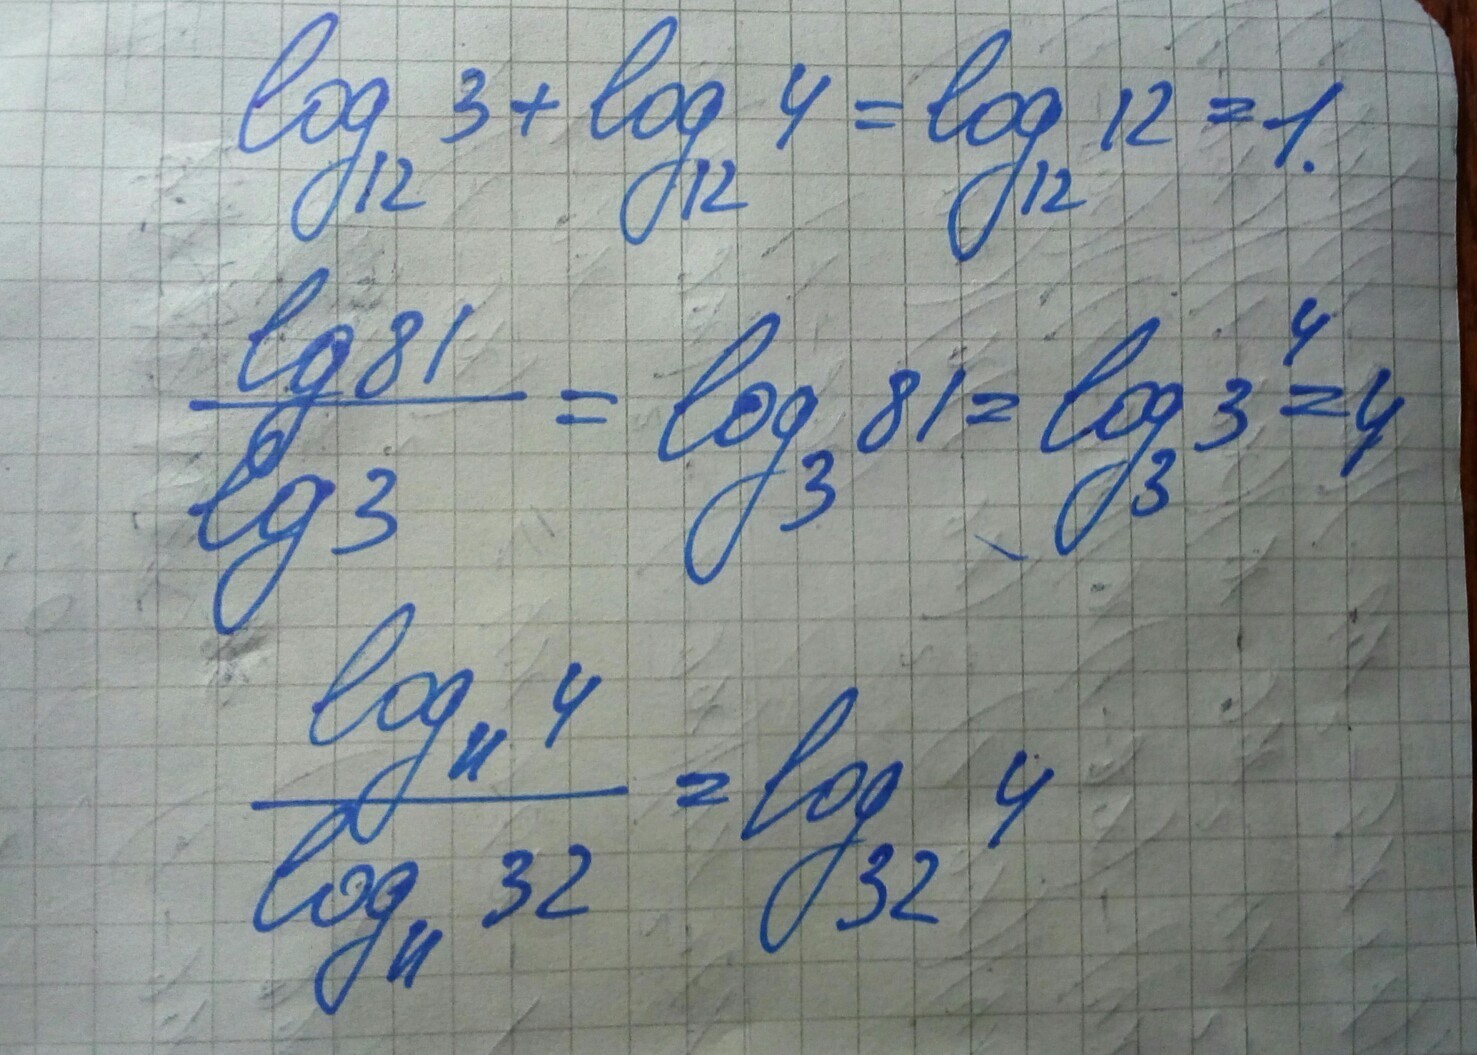 log₁₂ 3 + log₁₂ 4 = log₁₂ 12 = 1.
lg 81 / lg 3 = log₃ 81 = log₃ 3⁴ = 4
log₁₁ 4 / log₁₁ 32 = log₃₂ 4